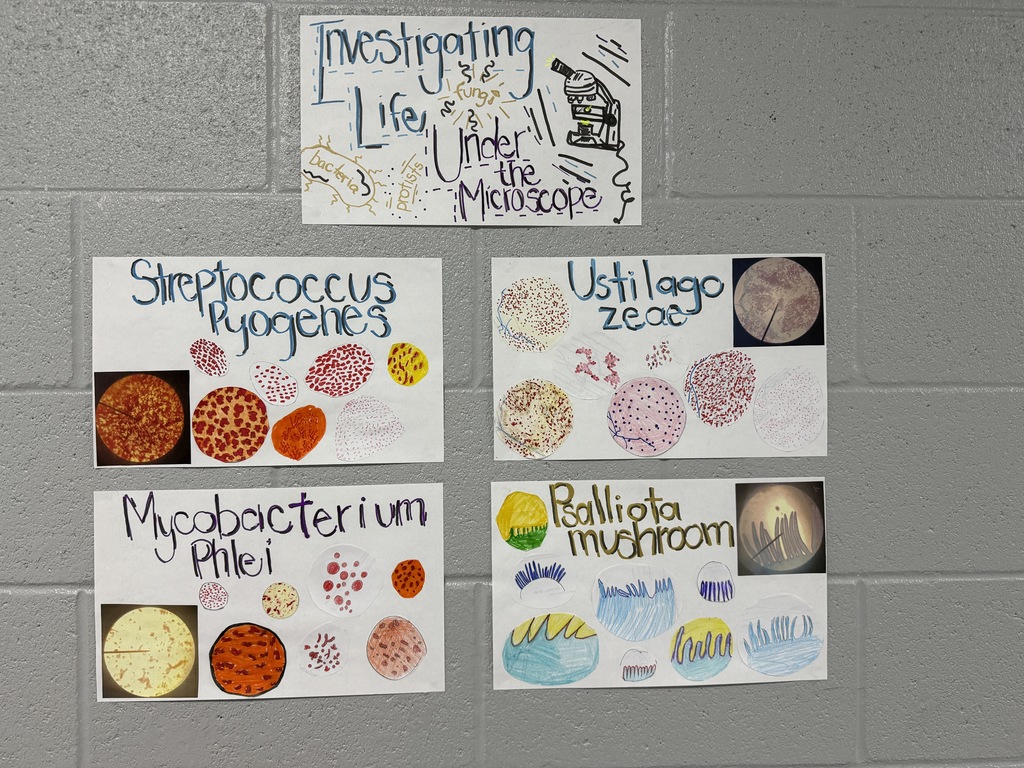 Investigating
Life
fungi
Under
the
Microscope
bacteria
protists
Streptococcus
Pyogenes
Ustilago
zeae
Mycobacterium
Phlei
Psalliota
mushroom